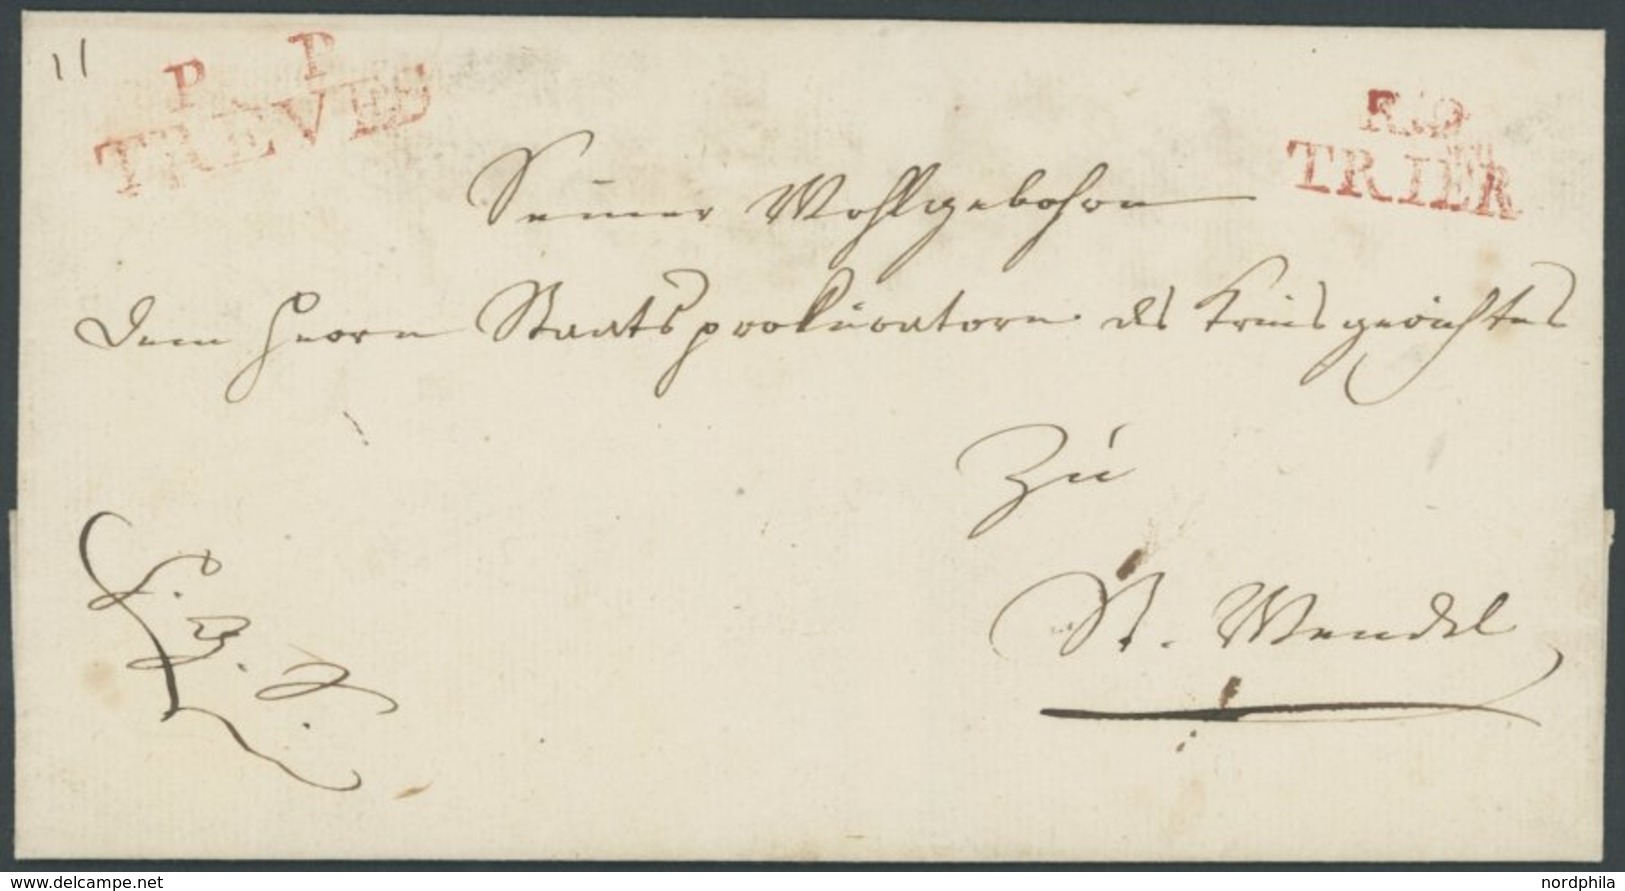 11
P. P.
TREVES
R.9
TRIER
Seiner Wohlgebohren
dem Herrn Staatsprokuratoren des Kreisgerichtes
Zu
St. Wendel
www.delcampe.net
nordphila